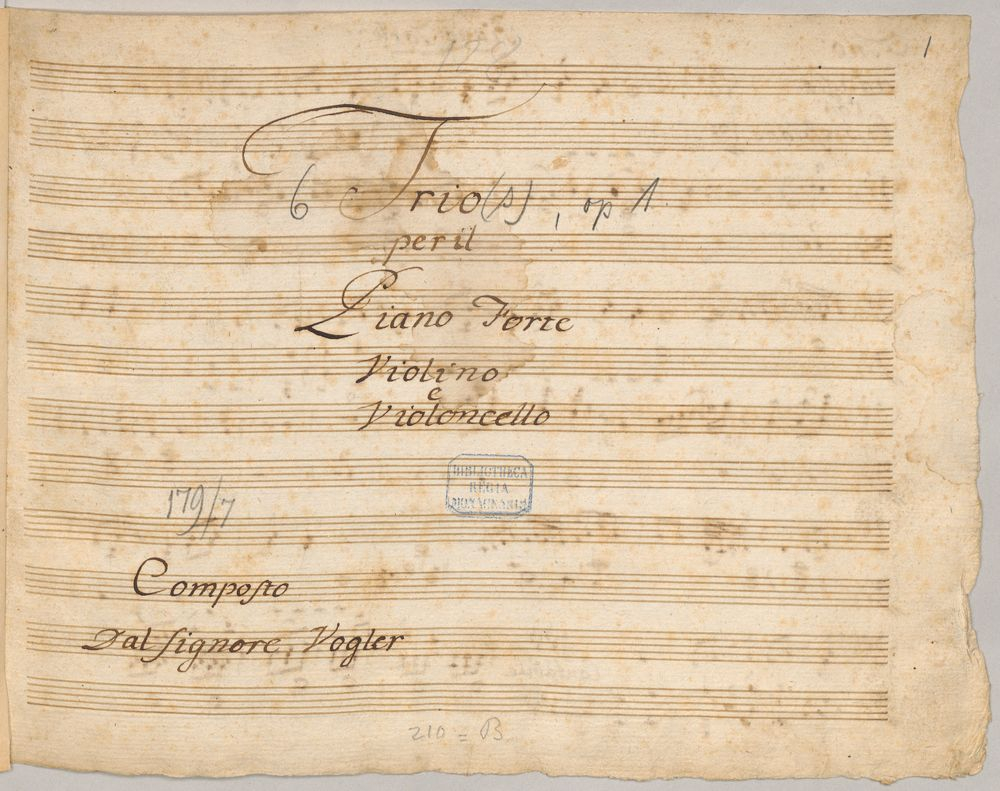 1
178
6 Trio(s), op 1.
per il
Piano Forte
Violino
e
Violoncello
BIBLIOTHECA
REGIA
MONACENSIS
179/7
Compoſto
Dal ſignore Vogler
210 = B.